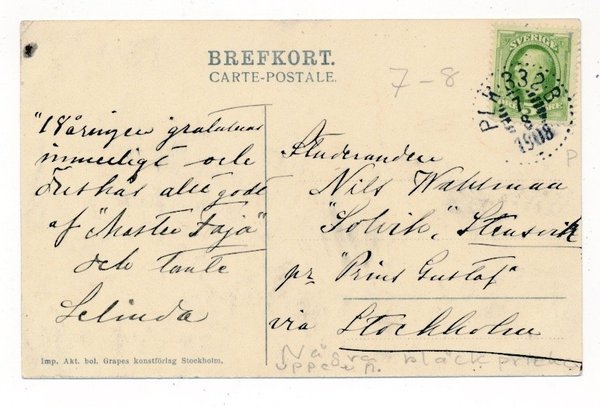 BREFKORT.
CARTE-POSTALE.
7-8
SVERIGE
PLK 332 B
1908
"18åringen gratuleras
innerligt och
önskas allt godt
af "Moster Faja"
och tante
Selinda
Studeranden
Nils Wahlman
"Solvik", Stensvik
pr "Prins Gustaf"
via Stockholm
Imp. Akt. bol. Grapes konstförlag Stockholm.
Några bläckprickar
uppe
P